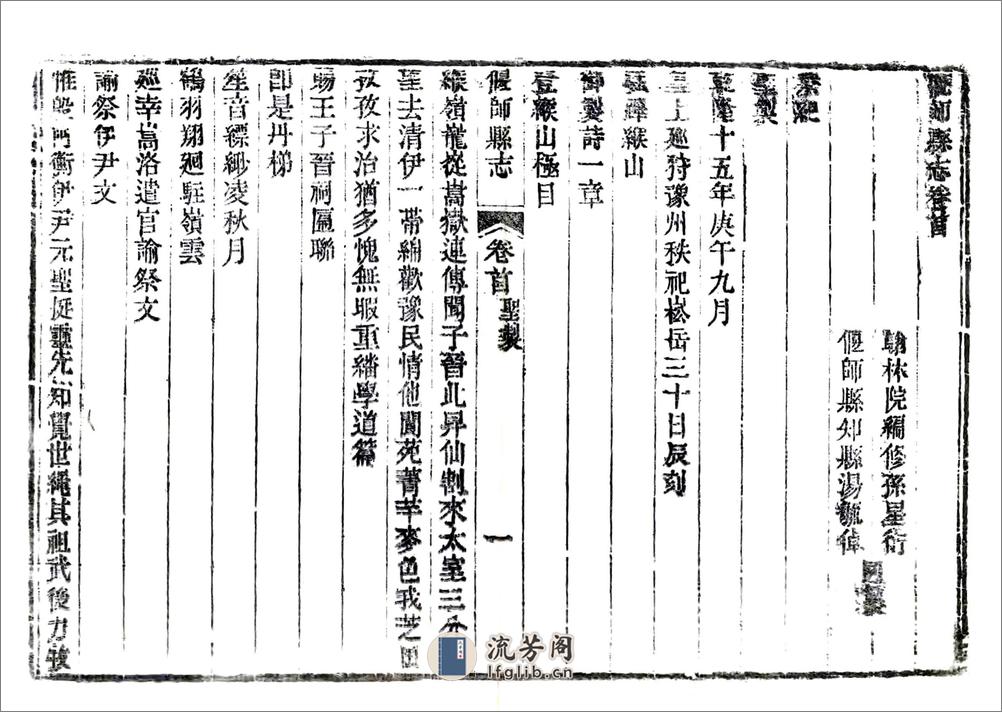 偃師縣志卷首
翰林院編修孫星衍
偃師縣知縣湯毓倬
同撰
宸紀
聖製
乾隆十五年庚午九月
皇上廵狩豫州秩祀崧岳三十日辰刻
駐蹕緱山
御製詩一章
登緱山極目
偃師縣志
卷首
聖製
一
緱嶺巃嵸嵩嶽連傳聞子晉此昇仙割來太室三分
翠去清伊一帶綿歡豫民情他閬苑菁芊麥色我芝田
孜孜求治猶多愧無暇重繙學道篇
賜王子晉祠匾聯
即是丹梯
笙音縹緲凌秋月
鶴羽翔廻駐嶺雲
廵幸嵩洛遣官諭祭文
諭祭伊尹文
惟殷阿衡伊尹元聖挺靈先知覺世繩其祖武後力
流芳阁
lfglib.cn